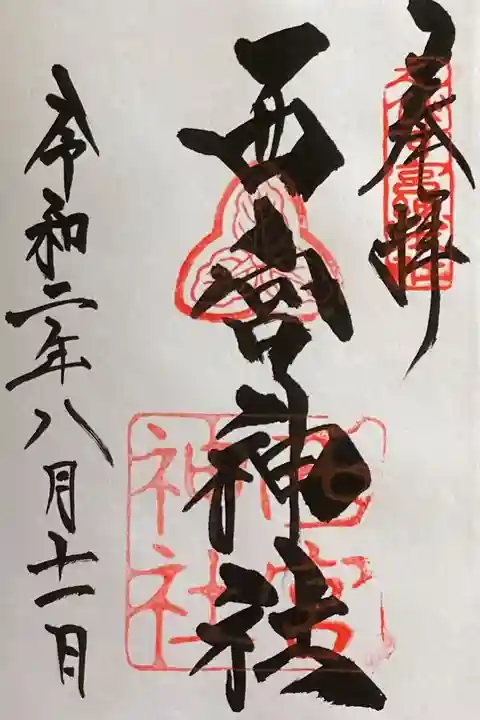 奉拝
西宮神社
令和二年八月十一日
西宮
神社